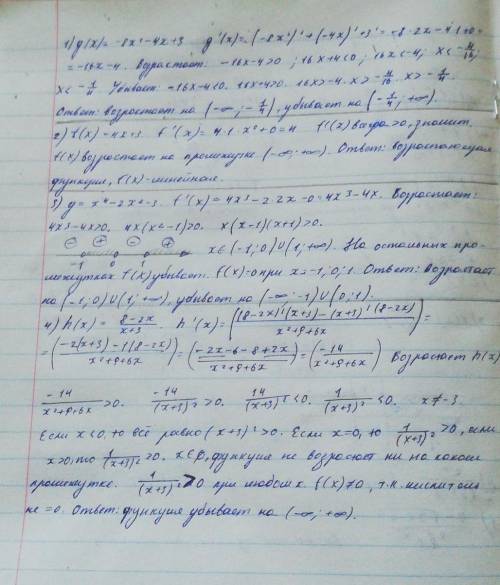 1) g(x) = -8x² - 4x + 3   g'(x) = (-8x²)' + (-4x)' + 3' = -8·2x - 4·1 + 0 =
= -16x - 4. Возрастает: -16x - 4 > 0; 16x + 4 < 0; 16x < -4; x < -4/16;
x < -1/4. Убывает: -16x - 4 < 0. 16x + 4 > 0. 16x > -4. x > -4/16. x > -1/4.
Ответ: возрастает на (-∞; -1/4), убывает на (-1/4; +∞).
2) f(x) = 4x + 3. f'(x) = 4·1·x⁰ + 0 = 4 f'(x) всегда > 0, значит
f(x) возрастает на промежутке (-∞; +∞). Ответ: возрастающая
функция, f(x) - линейная.
3) y = x⁴ - 2x² - 3. f'(x) = 4x³ - 2·2x - 0 = 4x³ - 4x. Возрастает:
4x³ - 4x > 0. 4x(x² - 1) > 0. x(x-1)(x+1) > 0.
- + - +
-1 0 1 x ∈ (-1; 0) ∪ (1; +∞). На остальных про-
межутках f(x) убывает. f(x) = 0 при x = -1; 0; 1. Ответ: возрастает
на (-1; 0) ∪ (1; +∞), убывает на (-∞; -1) ∪ (0; 1).
4) h(x) = (8-2x)/(x+3) h'(x) = (((8-2x)'(x+3) - (x+3)'(8-2x))/(x²+9+6x)) =
= ((-2(x+3) - 1(8-2x))/(x²+9+6x)) = ((-2x-6-8+2x)/(x²+9+6x)) = (-14/(x²+9+6x)) Возрастает h(x)
-14/(x²+9+6x) > 0. -14/(x+3)² > 0. 14/(x+3)² < 0. 1/(x+3)² < 0. x ≠ -3
Если x < 0, то всё равно (x+3)² > 0. Если x = 0, то 1/(x+3)² > 0, если
x > 0, то 1/(x+3)² > 0. x ∈ ∅, функция не возрастает ни на каком
промежутке. 1/(x+3)² > 0 при любом x f(x) ≠ 0, т.к. числитель
не = 0. Ответ: функция убывает на (-∞; +∞).